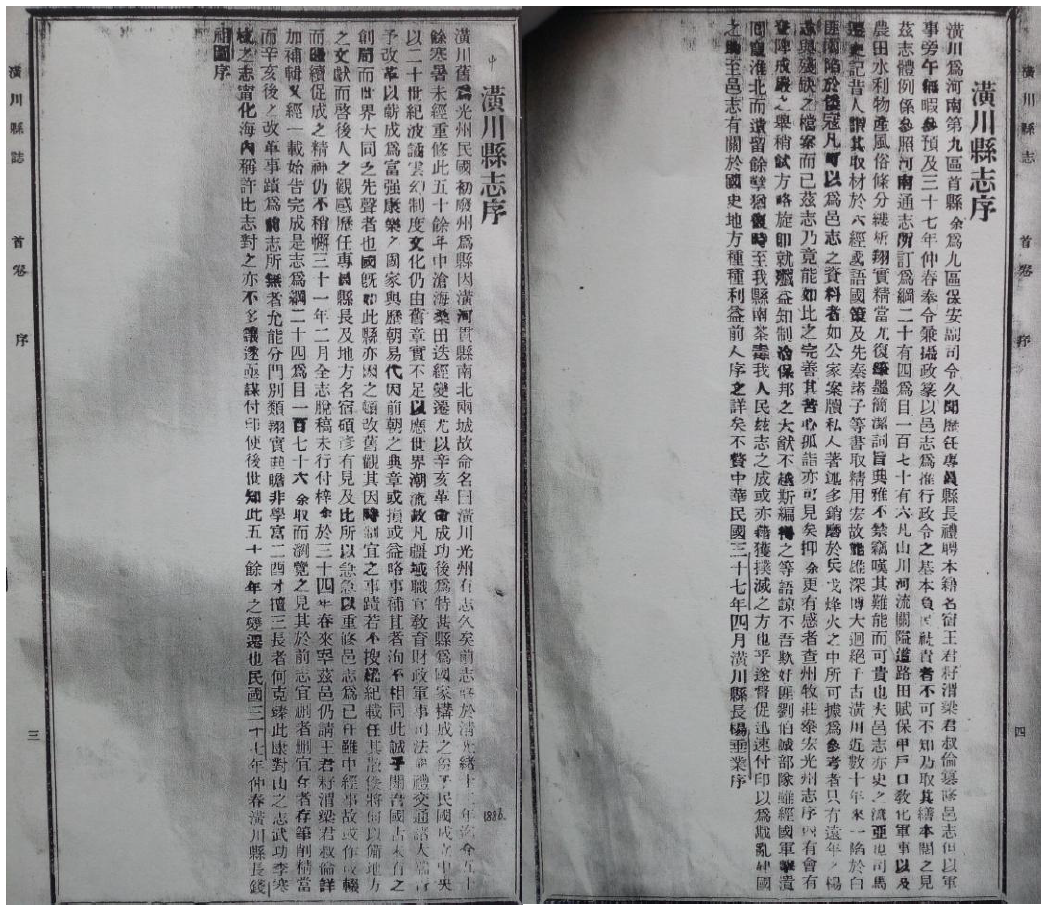 潢川縣誌 首卷 序 三
潢川縣志序
潢川舊爲光州民國初廢州爲縣因潢河貫縣南北兩城故命名曰潢川光州有志久矣前志修於清光緒十二年迄今五十
1886.
餘寒暑未經重修此五十餘年中滄海桑田迭經變遷尤以辛亥革命成功後爲特甚縣爲國家構成之份子民國成立中央
以二十世紀波譎雲幻制度文化仍由舊章實不足以應世界潮流故凡疆域職官敎育財政軍事司法典禮交通諸大端皆
予改革以蘄成爲富强康樂之國家與歷朝易代因前朝之典章或損或益略事補苴者洵不相同此誠乎開吾國古未有之
創局而世界大同之先聲者也國旣如此縣亦因之頓改舊觀其因時制宜之事蹟若不搜羅紀載任其散佚將何以備地方
之文獻而啓後人之觀感歷任專員縣長及地方名宿碩彥有見及此所以急急以重修邑志爲已任雖中經事故或作或輟
而賡續促成之精神仍不稍懈三十一年二月全志脫稿未行付梓余於三十四年春來宰茲邑仍請王君籽渭梁君叔倫詳
加補輯又經一載始告完成是志爲綱二十四爲目一百七十六余取而瀏覽之見其於前志宜刪者刪宜存者存筆削精當
而辛亥後之改革事蹟爲前志所無者尤能分門別類翔實典贍非學富二酉才擅三長者何克臻此康對山之志武功李寒
枝之志寧化海內稱許比志對之亦不多讓遂亟謀付印使後世知此五十餘年之變遷也民國三十七年仲春潢川縣長錢
祖圖序
潢川縣志 首卷 序 四
潢川縣志序
潢川爲河南第九區首縣余爲九區保安副司令久聞歷任專員縣長禮聘本籍名宿王君籽渭梁君叔倫纂修邑志但以軍
事旁午無暇參預及三十七年仲春奉令兼攝政篆以邑志爲推行政令之基本負民社責者不可不知乃取其繕本閱之見
茲志體例係參照河南通志所訂爲綱二十有四爲目一百七十有六凡山川河流關隘道路田賦保甲戶口敎化軍事以及
農田水利物產風俗條分縷析翔實精當尤復筆墨簡潔詞旨典雅不禁竊嘆其難能而可貴也夫邑志亦史之流亞也司馬
遷史記昔人謂其取材於六經或語國策及先秦諸子等書取精用宏故能雄深博大迥絕千古潢川近數十年來一陷於白
匪兩陷於倭寇凡可以爲邑志之資料者如公家案牘私人著述多銷磨於兵戈烽火之中所可據爲參考者只有遠年之楊
志與殘缺之檔案而已茲志乃竟能如此之完善其苦心孤詣亦可見矣抑余更有感者查州牧莊泰宏光州志序內有會有
登陴戒嚴之舉稍試方略旋卽就殲益知制治保邦之大猷不越斯編得之等語諒不吾欺奸匪劉伯誠部隊雖經國軍擊潰
回竄淮北而遺留餘孽猶復時至我縣南荼毒我人民茲志之成或亦藉獲撲滅之方也乎遂督促迅速付印以爲戡亂建國
之助至邑志有關於國史地方種種利益前人序之詳矣不贅中華民國三十七年四月潢川縣長楊垂業序